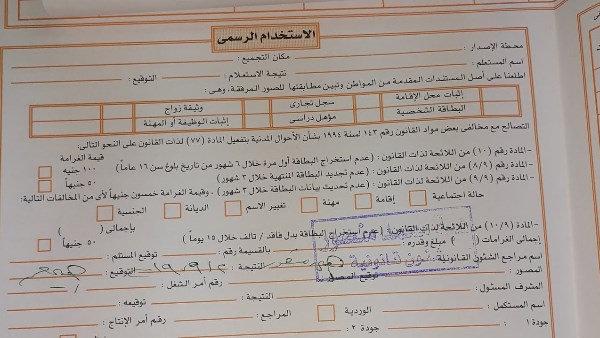 الاستخدام الرسمى
محطة الإصدار : مكان التجميع :
اسم المستعلم : نتيجة الاستعلام : التوقيع :
اطلعنا على أصل المستندات المقدمة من المواطن وتبين مطابقتها للصور المرفقة، وهى:
إثبات محل الإقامة سجل تجارى وثيقة زواج
البطاقة الشخصية مؤهل دراسى إثبات الوظيفة أو المهنة
التصالح مع مخالفى بعض مواد القانون رقم ١٤٣ لسنة ١٩٩٤ بشأن الأحوال المدنية بتفعيل المادة (٧٧) لذات القانون على النحو التالى:
قيمة الغرامة
-المادة رقم (١٠) من اللائحة لذات القانون : (عدم استخراج البطاقة أول مرة خلال ٦ شهور من تاريخ بلوغ سن ١٦ عاماً) ١٠٠ جنيه
-المادة رقم (٨/٩) من اللائحة لذات القانون : (عدم تجديد البطاقة المنتهية خلال ٣ شهور) ٥٠ جنيهاً
-المادة رقم (٩/٩) من اللائحة لذات القانون : (عدم تحديث بيانات البطاقة خلال ٣ شهور) . وقيمة الغرامة خمسون جنيهاً لأى من المخالفات التالية:
حالة اجتماعية إقامة مهنة تغيير الاسم الديانة الجنسية
بإجمالى ( )
-المادة رقم (١٠/٩) من اللائحة لذات القانون : (عدم استخراج البطاقة بدل فاقد / تالف خلال ١٥ يوماً) ٥٠ جنيهاً
إجمالى الغرامات ( ) مبلغ وقدره : بالقسيمة رقم : توقيع المستلم :
اسم مراجع الشئون القانونية : النتيجة : التوقيع :
المصور : توقيع المصور : رقم أمر الشغل :
المشرف المسئول : النتيجة : توقيعه :
اسم المستكمل : الوردية المراجع : رقم أمر الإنتاج :
جودة ١ : جودة ٢ :